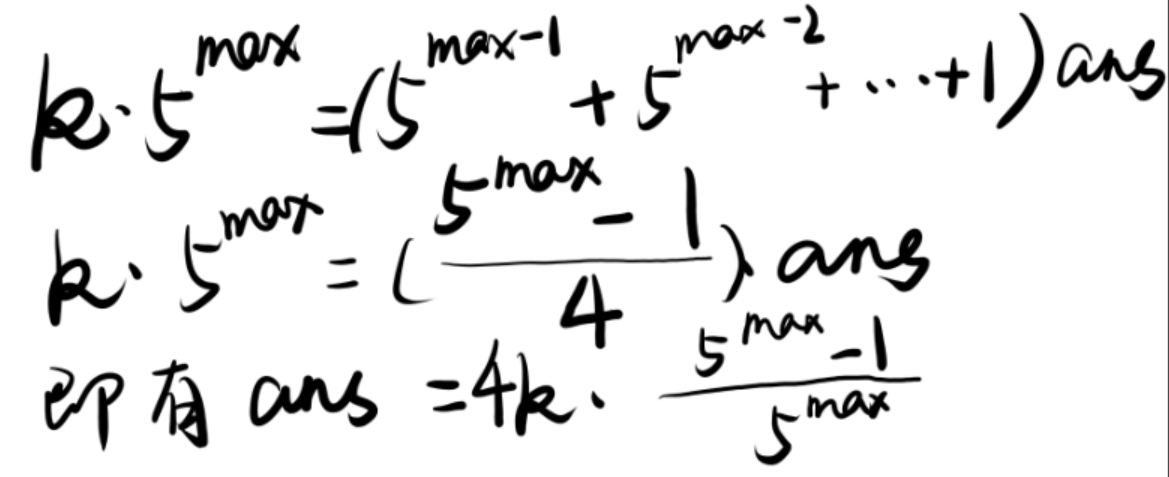 k·5^max =(5^max-1 + 5^max-2 + ··· +1) ans
k·5^max = ((5^max - 1)/4). ans
即有 ans =4k· (5^max -1)/5^max